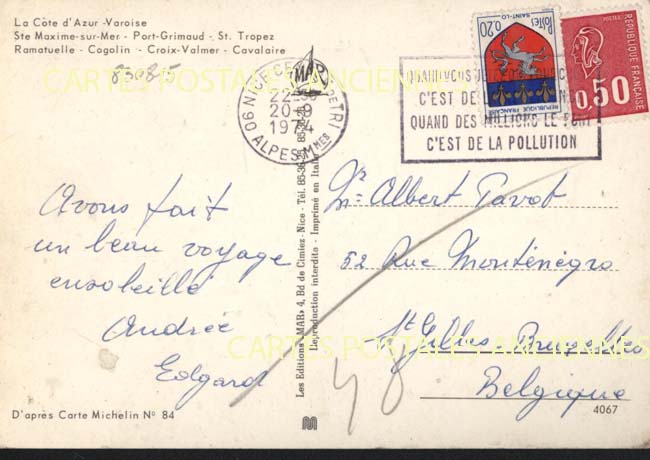 La Côte d'Azur -Varoise
Ste Maxime-sur-Mer - Port-Grimaud - St. Tropez
Ramatuelle - Cogolin - Croix-Valmer - Cavalaire
83085
CARTES POSTALES ANCIENNES
06 NICE
20-9
1974
ALPES Mmes
QUAND
C'EST DE
QUAND DES MILLIONS LE FONT
C'EST DE LA POLLUTION
0,20 Postes
SAINT-LO
REPUBLIQUE FRANÇAISE
0,50
REPUBLIQUE FRANÇAISE
Avons fait
un beau voyage
ensoleillé
Andrée
Edgard
Les Editions "MAR" 4, Bd de Cimiez - Nice - Tél. 85-36
Reproduction interdite - Imprimé en Italie
MAR
Mr Albert Pavot
52 Rue Monténégro
St Gilles Bruxelles
Belgique
CARTES POSTALES ANCIENNES
48
D'après Carte Michelin No 84
4067